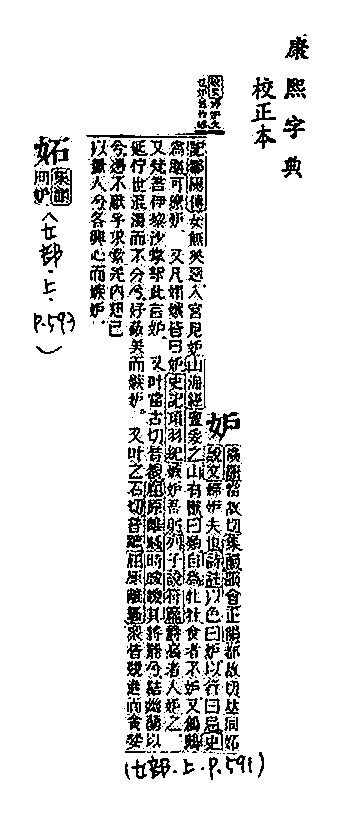 康熙字典
校正本
妒
廣韻當故切集韻韻會正韻都故切𠀤同妬
說文婦妒夫也詩註以色曰妒以行曰忌史
記鄒陽傳女無美惡入宮見妒山海經亶爰之山有獸曰類自爲牝牡食者不妒又鶬鶊
爲膳可療妒。又凡媢嫉皆曰妒史記項羽紀嫉妒吾躬列子說符篇爵高者人妒之。
又梵言伊黎沙此言妒。又叶當古切音覩屈原離騷時曖曖其將罷兮結幽蘭以
延佇世溷濁而不分兮好蔽美而嫉妒。又叶之石切音蹠屈原離騷衆皆競進而貪婪
兮憑不厭乎求索羌內恕己
以量人兮各興心而嫉妒。
(女部.上.P.591)
妬
集韻
同妒
(女部.上.P.593)